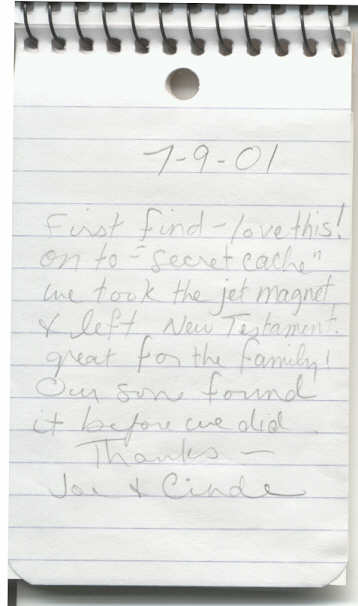 7-9-01
First find - love this!
on to - "secret cache"
we took the jet magnet
& left New Testament.
great for the family!
Our son found
it before we did
Thanks -
Joe & Cinde